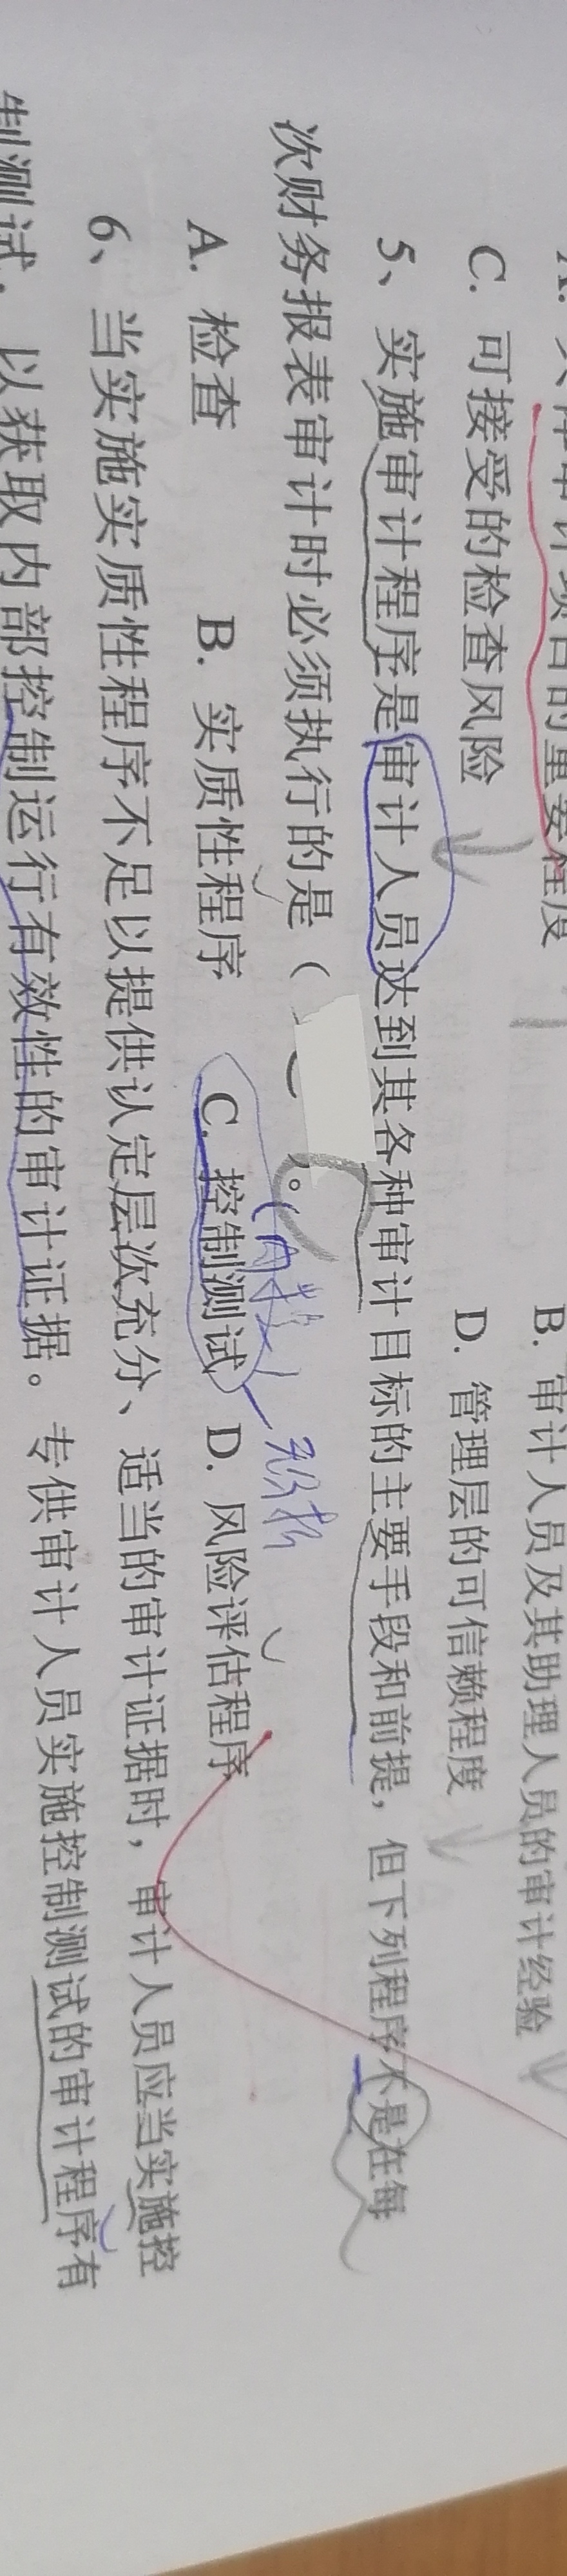 B. 审计人员及其助理人员的审计经验
C. 可接受的检查风险 D. 管理层的可信赖程度
5、实施审计程序是审计人员达到其各种审计目标的主要手段和前提，但下列程序不是在每
次财务报表审计时必须执行的是（ ）。
A. 检查 B. 实质性程序 C. 控制测试 D. 风险评估程序
6、当实施实质性程序不足以提供认定层次充分、适当的审计证据时，审计人员应当实施控
制测试，以获取内部控制运行有效性的审计证据。专供审计人员实施控制测试的审计程序有